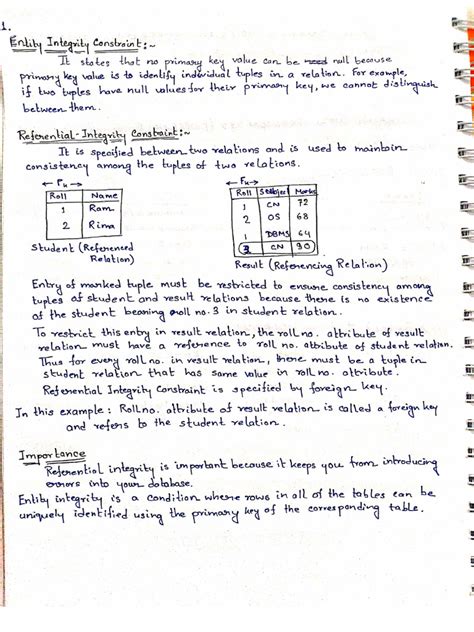 1.
Entity Integrity Constraint:~
It states that no primary key value can be null because
primary key value is to identify individual tuples in a relation. For example,
if two tuples have null values for their primary key, we cannot distinguish
between them.
Referential-Integrity Constraint:~
It is specified between two relations and is used to maintain
consistency among the tuples of two relations.
Roll Name
1 Ram
2 Rima
Student (Referenced
Relation)
Roll Subject Marks
1 CN 72
2 OS 68
1 DBMS 64
3 CN 90
Result (Referencing Relation)
Entry of marked tuple must be restricted to ensure consistency among
tuples of student and result relations because there is no existence
of the student bearing roll no. 3 in student relation.
To restrict this entry in result relation, the roll no. attribute of result
relation must have a reference to roll no. attribute of student relation.
Thus for every roll no. in result relation, there must be a tuple in
student relation that has same value in roll no. attribute.
Referential Integrity Constraint is specified by foreign key.
In this example: Roll no. attribute of result relation is called a foreign key
and refers to the student relation.
Importance
Referential integrity is important because it keeps you from introducing
errors into your database.
Entity integrity is a condition where rows in all of the tables can be
uniquely identified using the primary key of the corresponding table.